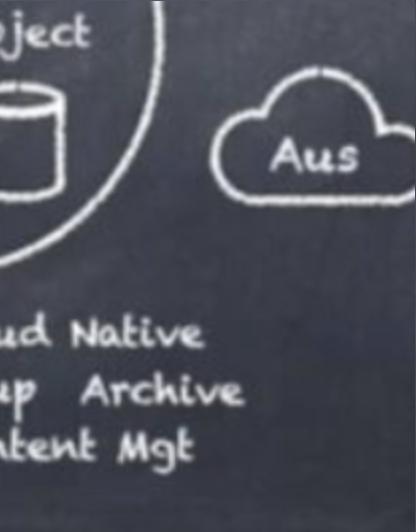 ject
Aus
ud Native
up Archive
ntent Mgt